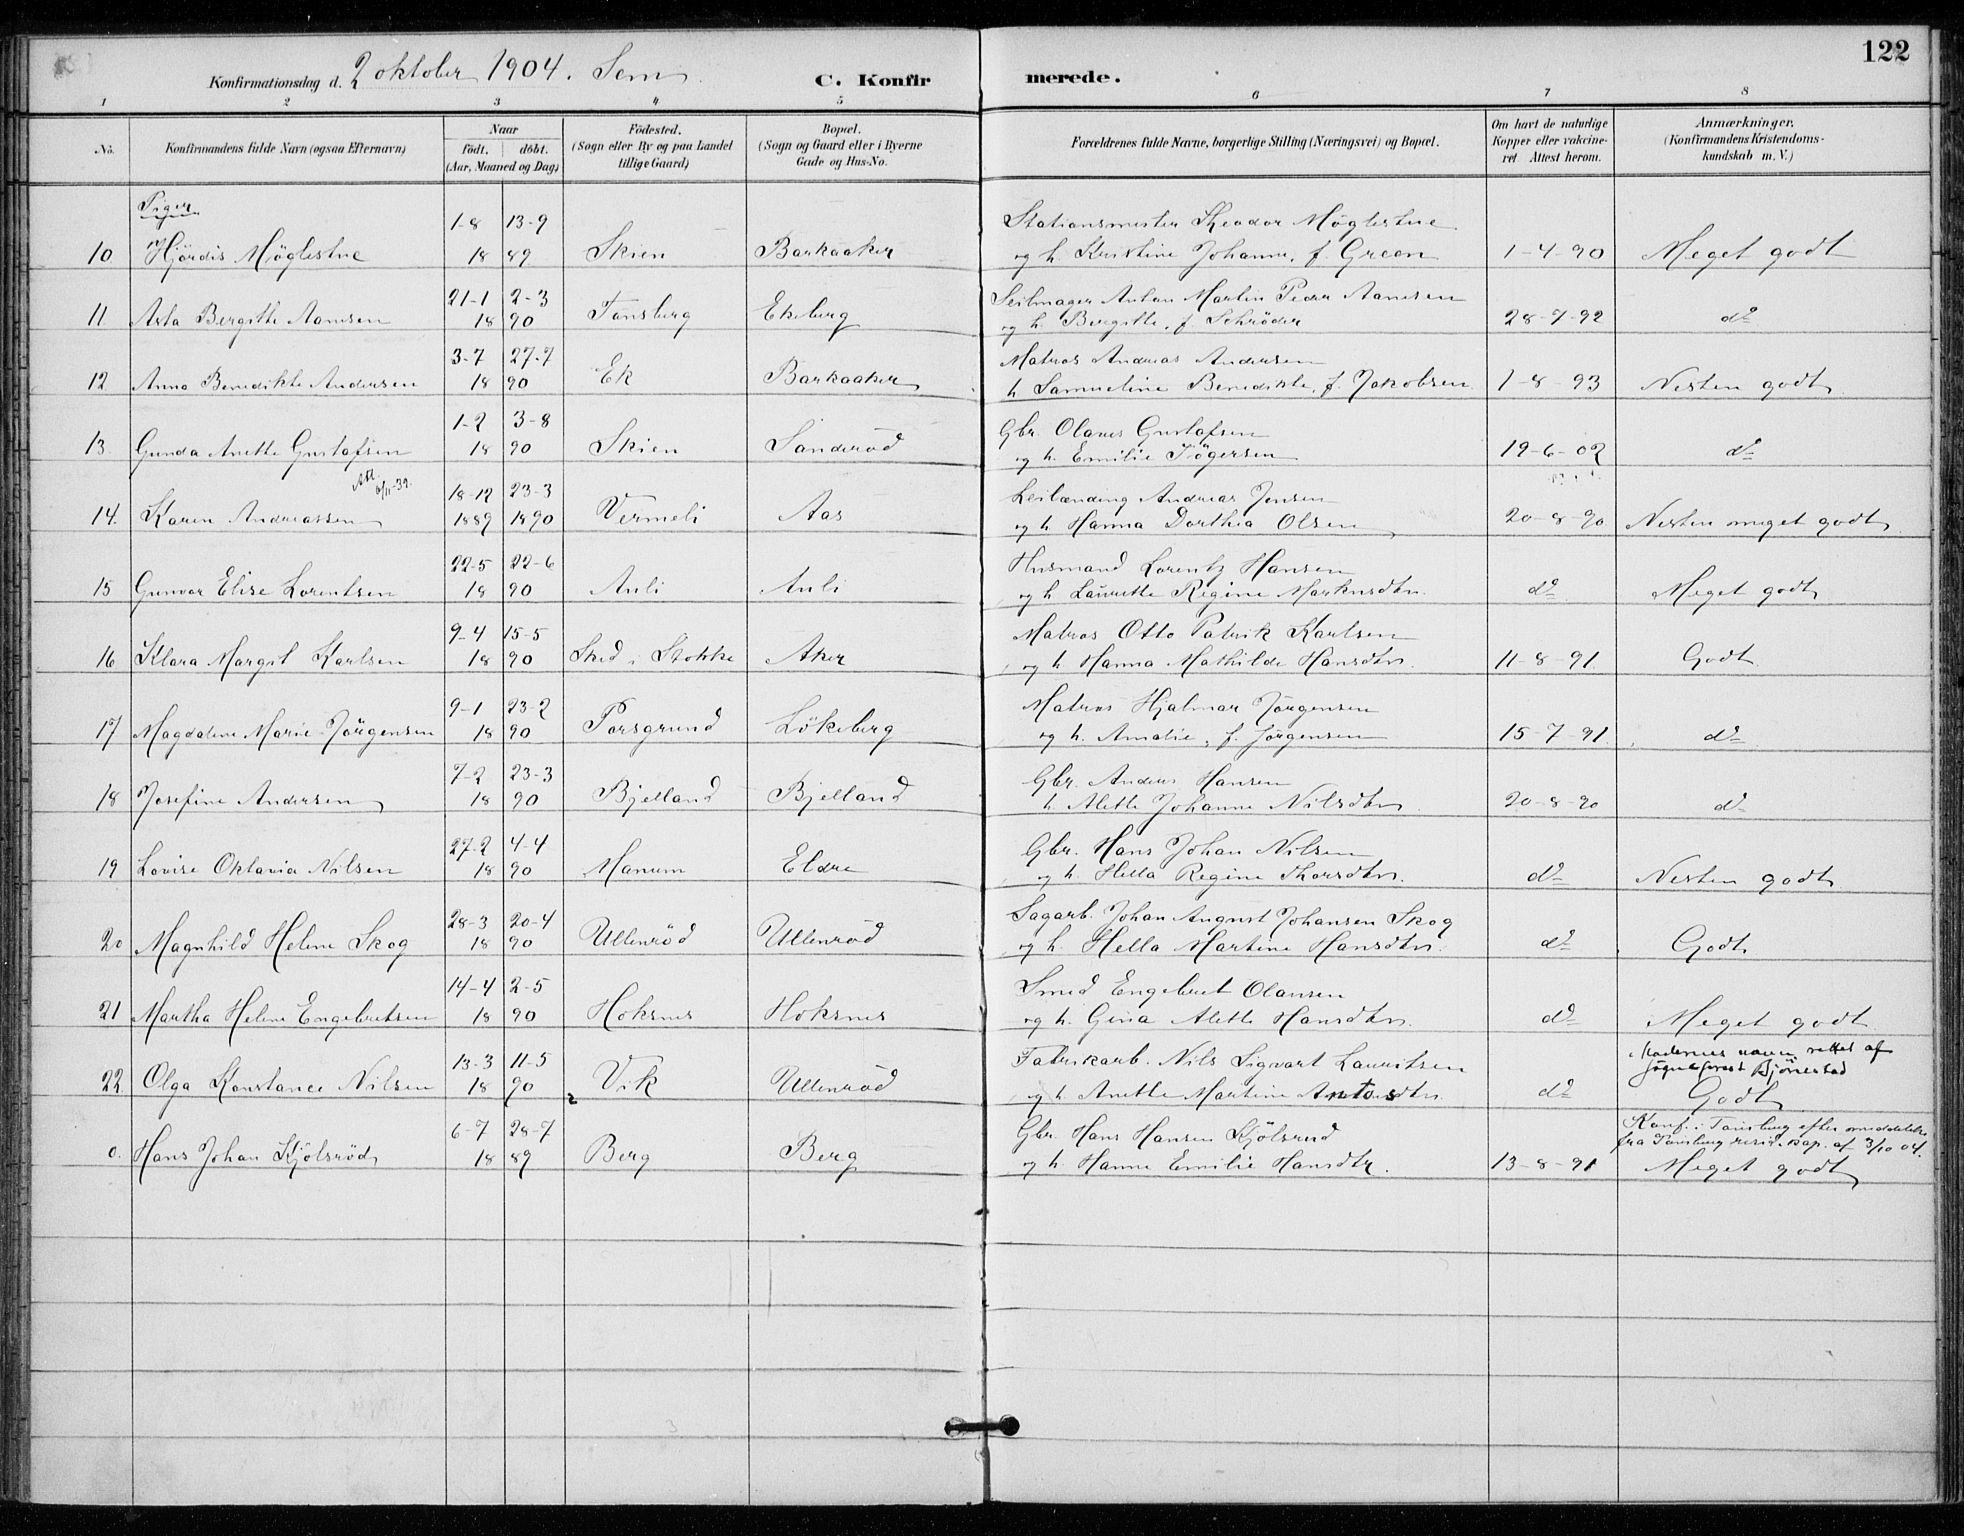 122
Konfirmationsdag d. 2 oktober 1904. Sem
C. Konfirmerede.
1 2 3 4 5 6 7 8
No. Konfirmandens fulde Navn (ogsaa Efternavn) Naar födt. döbt. (Aar, Maaned og Dag) Födested. (Sogn eller By og paa Landet tillige Gaard) Bopæl. (Sogn og Gaard eller i Byerne Gade og Hus-No. Forældrenes fulde Navne, borgerlige Stilling (Næringsvei) og Bopæl. Om havt de naturlige Kopper eller vakcineret Attest herom. Anmærkninger. (Konfirmandens Kristendomskundskab m. V.)
Piger
1-8 13-9 Stationsmester Theodor Møglestue
10 Hjördis Møglestue 18 89 Skien Barkaaker og h. Kristine Johanne, f. Green 1-4-90 Meget godt
21-1 2-3 Seilmager Anton Martin Peder Aamesen
11 Asta Bergitte Aamesen 18 90 Tønsberg Ekeberg og h. Bergitte, f. Schrøder 28-7-92 do
3-7 27-7 Matros Andreas Andersen
12 Anna Benedikte Andersen 18 90 Ek Barkaaker h. Samueline Benedikte, f. Jakobsen 1-8-93 Nesten godt
1-2 3-8 Gbr. Olaves Gustafsen
13 Gunda Anette Gustafsen 18 90 Skien Sanderød og h. Emilie Jögersen 19-6-02 do
Att. 6/11-39.
18-12 23-3 Leilænding Andreas Jensen
14. Karen Andreassen 1889 1890 Vermeli Aas og h Hanna Dorthea Olsen 20-8-90 Nesten meget godt
22-5 22-6 Husmand Lorentz Hansen
15 Gunvor Elise Lorentsen 18 90 Auli Auli og h Laurette Regine Markusdtr. do Meget godt
9-4 15-5 Matros Otto Patrik Karlsen
16 Klara Margit Karlsen 18 90 Sked i Stokke Aker og h Hanna Mathilde Hansdtr. 11-8-91. Godt
9-1 23-2 Matros Hjalmar Jørgensen
17 Magdalene Marie Jørgensen 18 90 Porsgrund Lökeberg og h. Amalie, f. Jørgensen 15-7-91 do
7-2 23-3 Gbr. Anders Hansen
18 Josefine Andersen 18 90 Bjelland Bjelland h. Alette Johanne Nilsdtr. 20-8-90 do
27-2 4-4 Gbr. Hans Johan Nilsen
19 Lovise Oktavia Nilsen 18 90 Manum Eldre og h. Hella Regine Thorsdtr. do Nesten godt
28-3 20-4 Sagarb. Johan August Johansen Skog
20 Magnhild Helene Skog 18 90 Ullenrød Ullenrød og h. Hella Martine Hansdtr. do Godt
14-4 2-5 Smed Engebret Olausen
21 Martha Helene Engebretsen 18 90 Hoksnes Hoksnes og h. Gina Alette Hansdtr. do Meget godt
13-3 11-5 Fabrikarb. Nils Sigvart Lauritsen Moderens navn rettet af
22. Olga Konstance Nilsen 18 90 Vik Ullenrød og h. Anette Martine Antonsdtr. do Sogneprest Bjørnestad
Godt
6-7 28-7 Gbr. Hans Hansen Kjølsrud Konf. i Tønsberg efter meddelelse
fra Tønsberg resid. kap. af 3/10 04.
0. Hans Johan Kjølsrød 18 89 Berg Berg og h. Hanne Emilie Hansdtr. 13-8-91 Meget godt